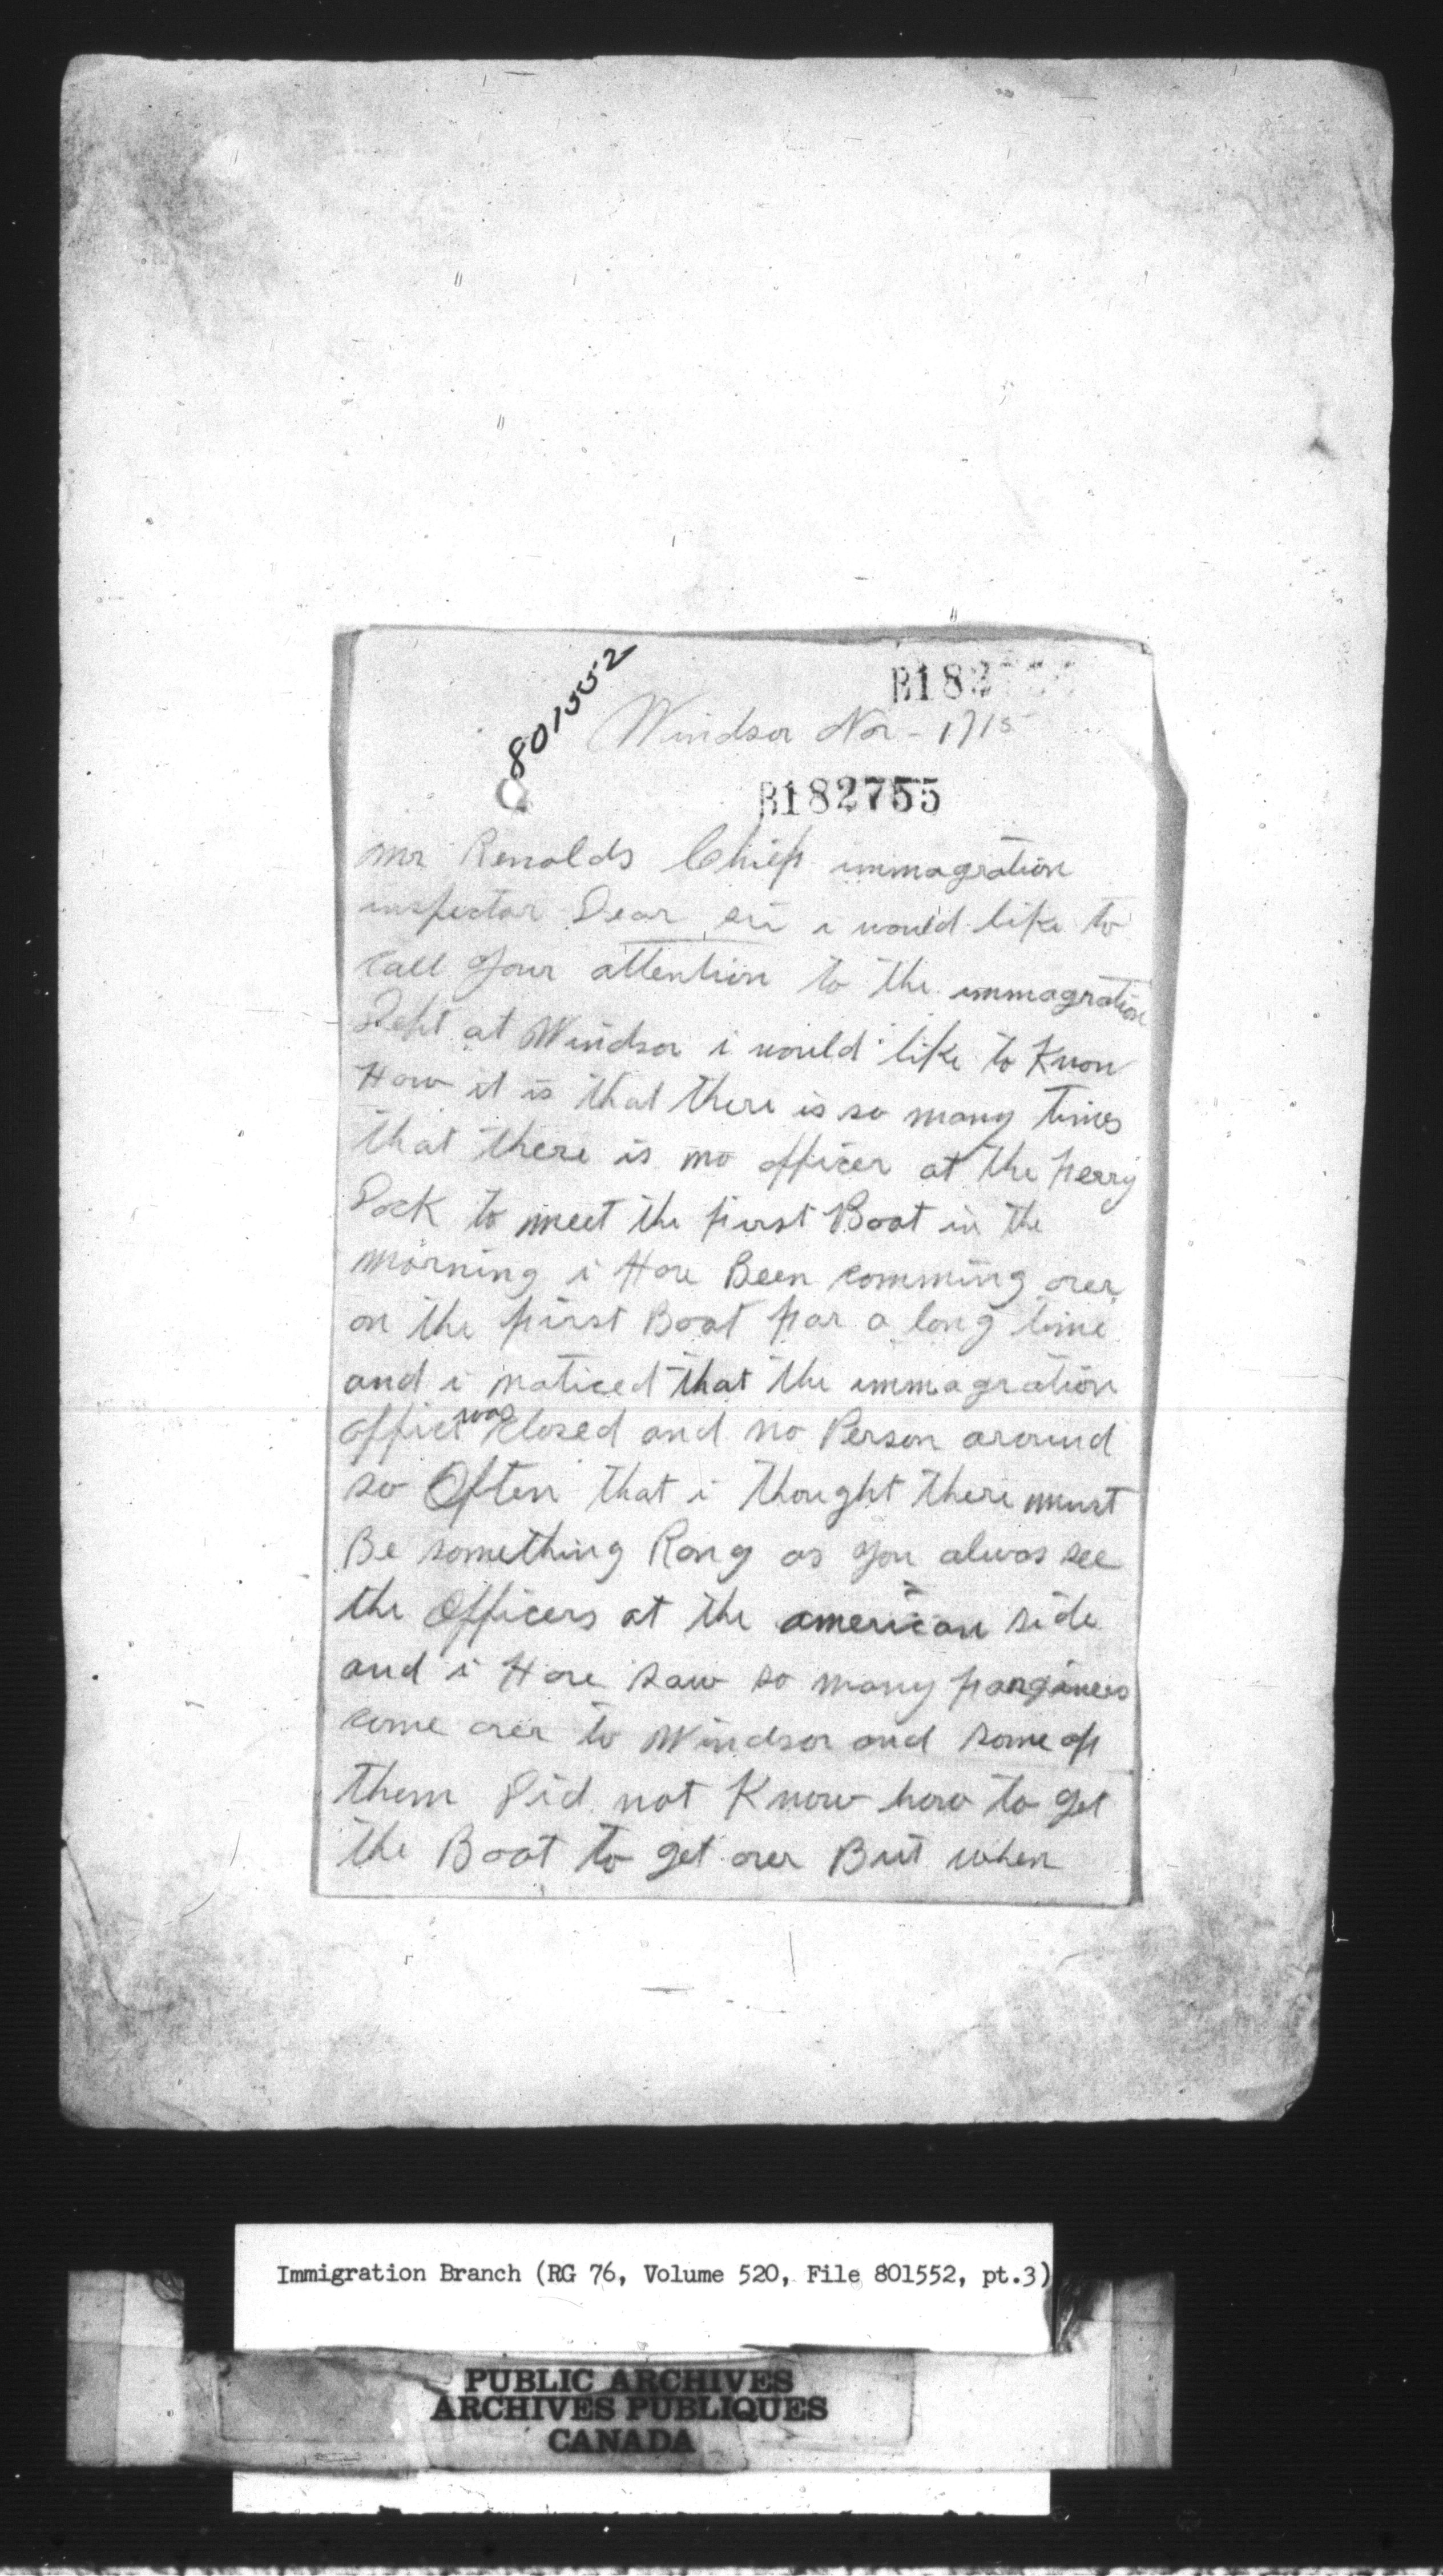 801552
B182
Windsor Nov - 1715
B182755
Mr Renolds Chief immagration
inspector Dear sir i would like to
call your attention to the immagration
Dept at Windsor i would like to Know
How it is that there is so many times
that there is no officer at the ferry
Dock to meet the first Boat in the
morning i Have Been comming over
on the first Boat for a long time
and i noticed that the immagration
office was closed and no Person around
so Often that i thought there must
Be something Rong as you alwas see
the Officers at the american side
and i Have saw so many forginers
come over to Windsor and some of
them Did not Know how to get
the Boat to get over But when
Immigration Branch (RG 76, Volume 520, File 801552, pt.3)
PUBLIC ARCHIVES
ARCHIVES PUBLIQUES
CANADA